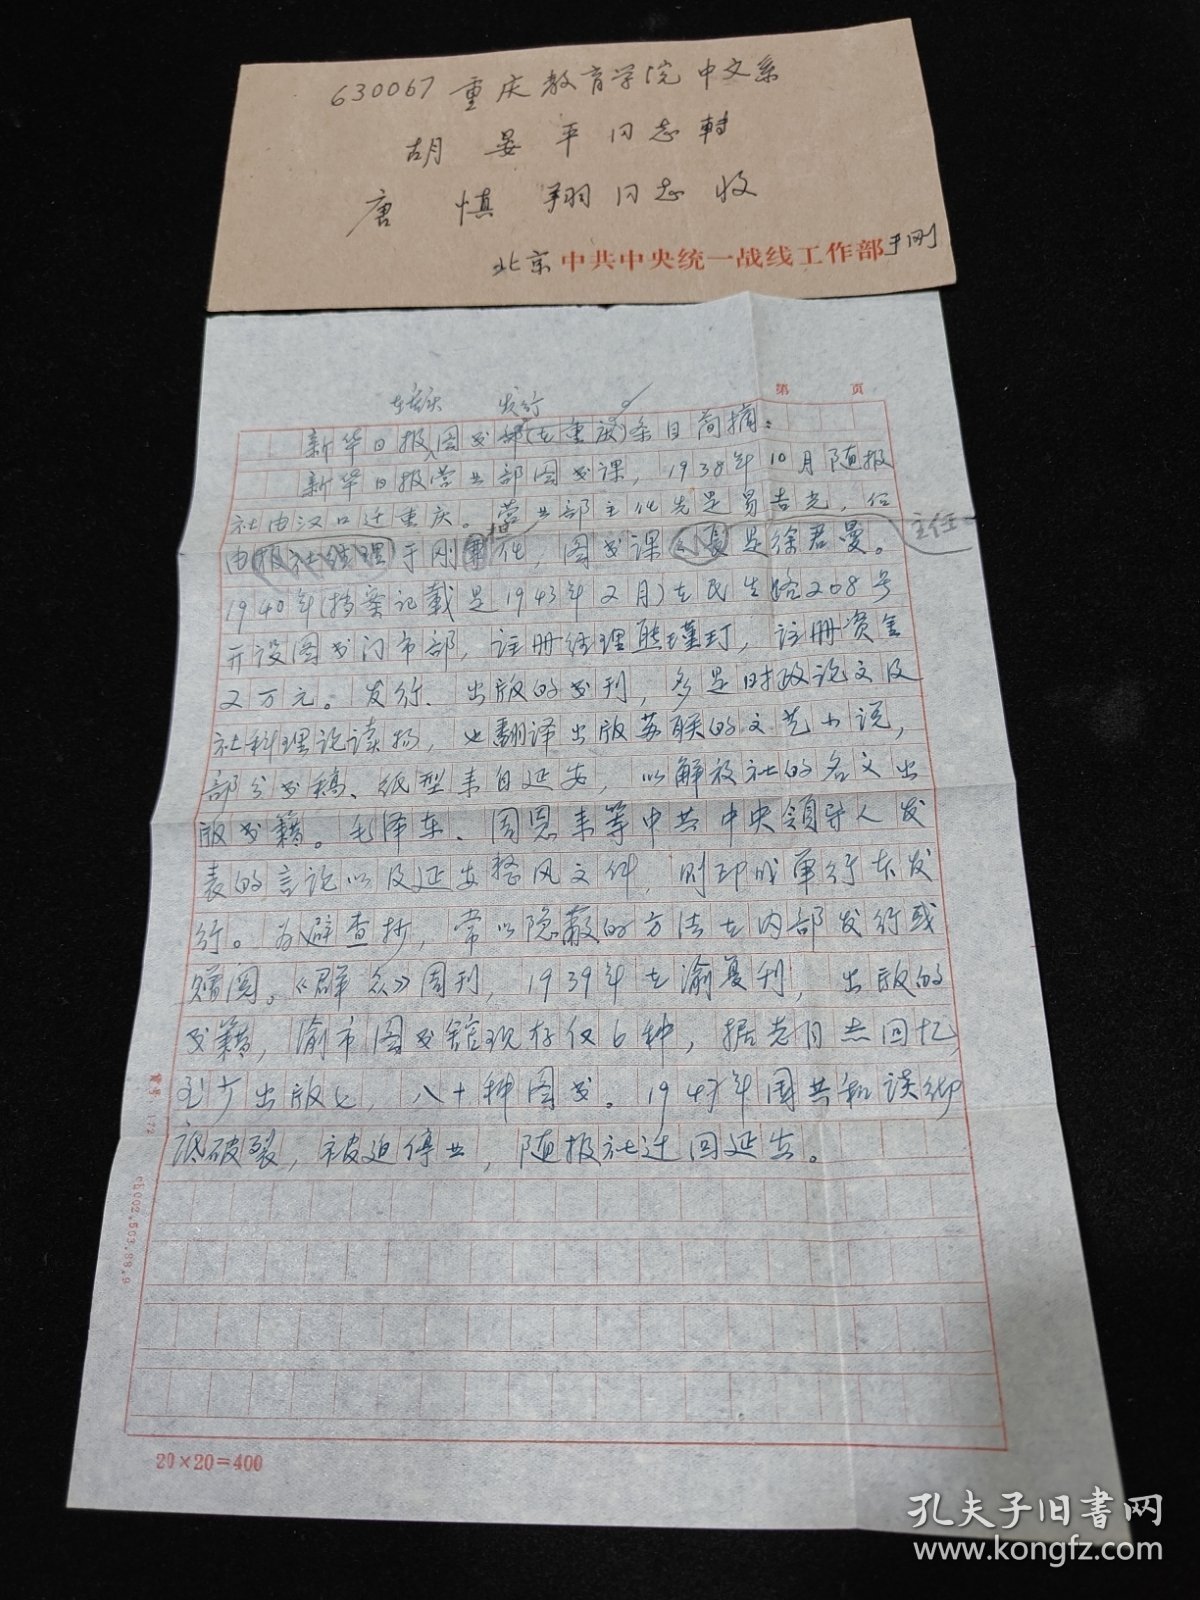 630067 重庆教育学院中文系
胡晏平同志转
唐慎翔同志收
北京 中共中央统一战线工作部 于刚
第 页
发行
新华日报图书部(在重庆)条目简摘:
新华日报营业部图书课,1938年10月随报
社由汉口迁重庆。营业部主任先是易吉光,后
由报社经理于刚任,图书课课长是徐君曼。
主任
1940年(档案记载是1943年2月)在民生路208号
开设图书门市部,注册经理熊瑾玎,注册资金
2万元。发行、出版的书刊,多是时政论文及
社科理论读物,也翻译出版苏联的文艺小说,
部分书稿、纸型来自延安,以解放社的名义出
版书籍。毛泽东、周恩来等中共中央领导人发
表的言论以及延安整风文件,则印成单行本发
行。为避查抄,常以隐蔽的方法在内部发行或
赠阅。《群众》周刊,1939年在渝复刊,出版的
书籍,渝市图书馆现存仅6种,据老同志回忆,
至少出版七、八十种图书。1947年国共和谈彻
底破裂,被迫停业,随报社迁回延安。
20×20=400
孔夫子旧书网
www.kongfz.com